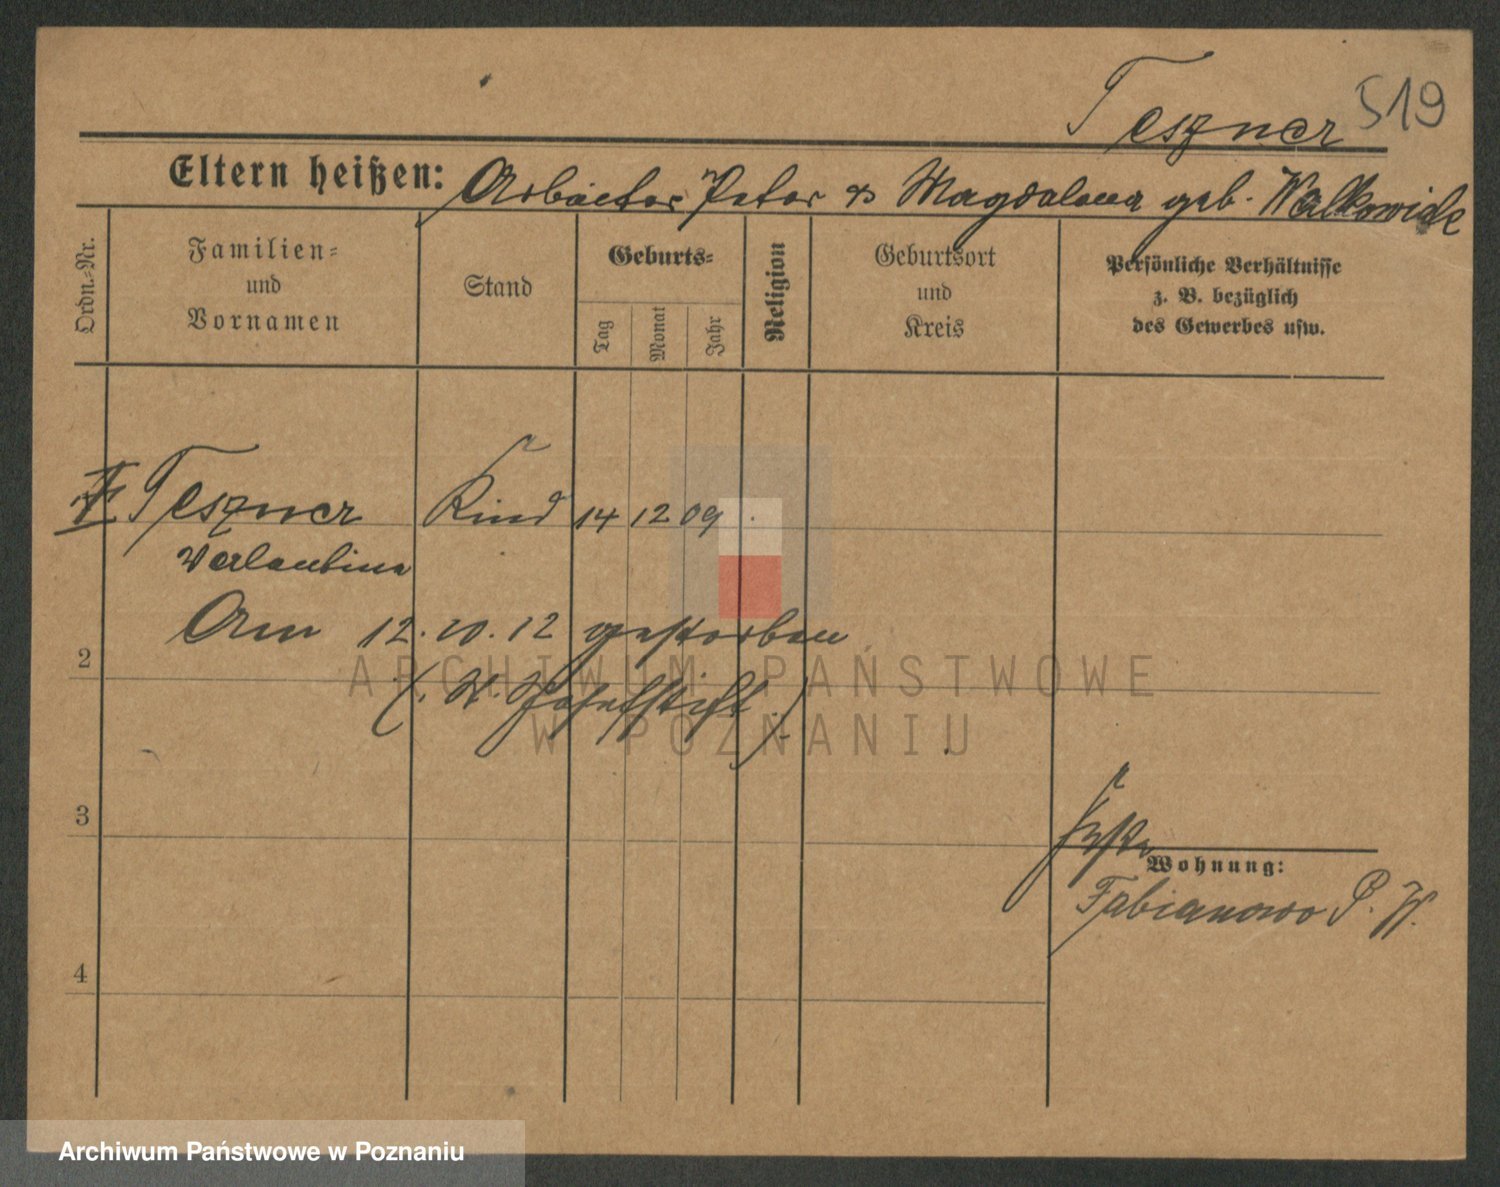 Teszner 519
Eltern heißen: Arbeiter Peter & Magdalena geb. Walkowiak
Ordn.-Nr.
Familien-
und
Vornamen
Stand
Geburts-
Tag
Monat
Jahr
Religion
Geburtsort
und
Kreis
Persönliche Verhältnisse
z. B. bezüglich
des Gewerbes usw.
Teszner Kind 14 12 09
Am 12. 10. 12 gestorben
2
(. St. Josefstift.)
3
Wohnung:
Fabianowo P. W.
4
ARCHIWUM PAŃSTWOWE
W POZNANIU
Archiwum Państwowe w Poznaniu